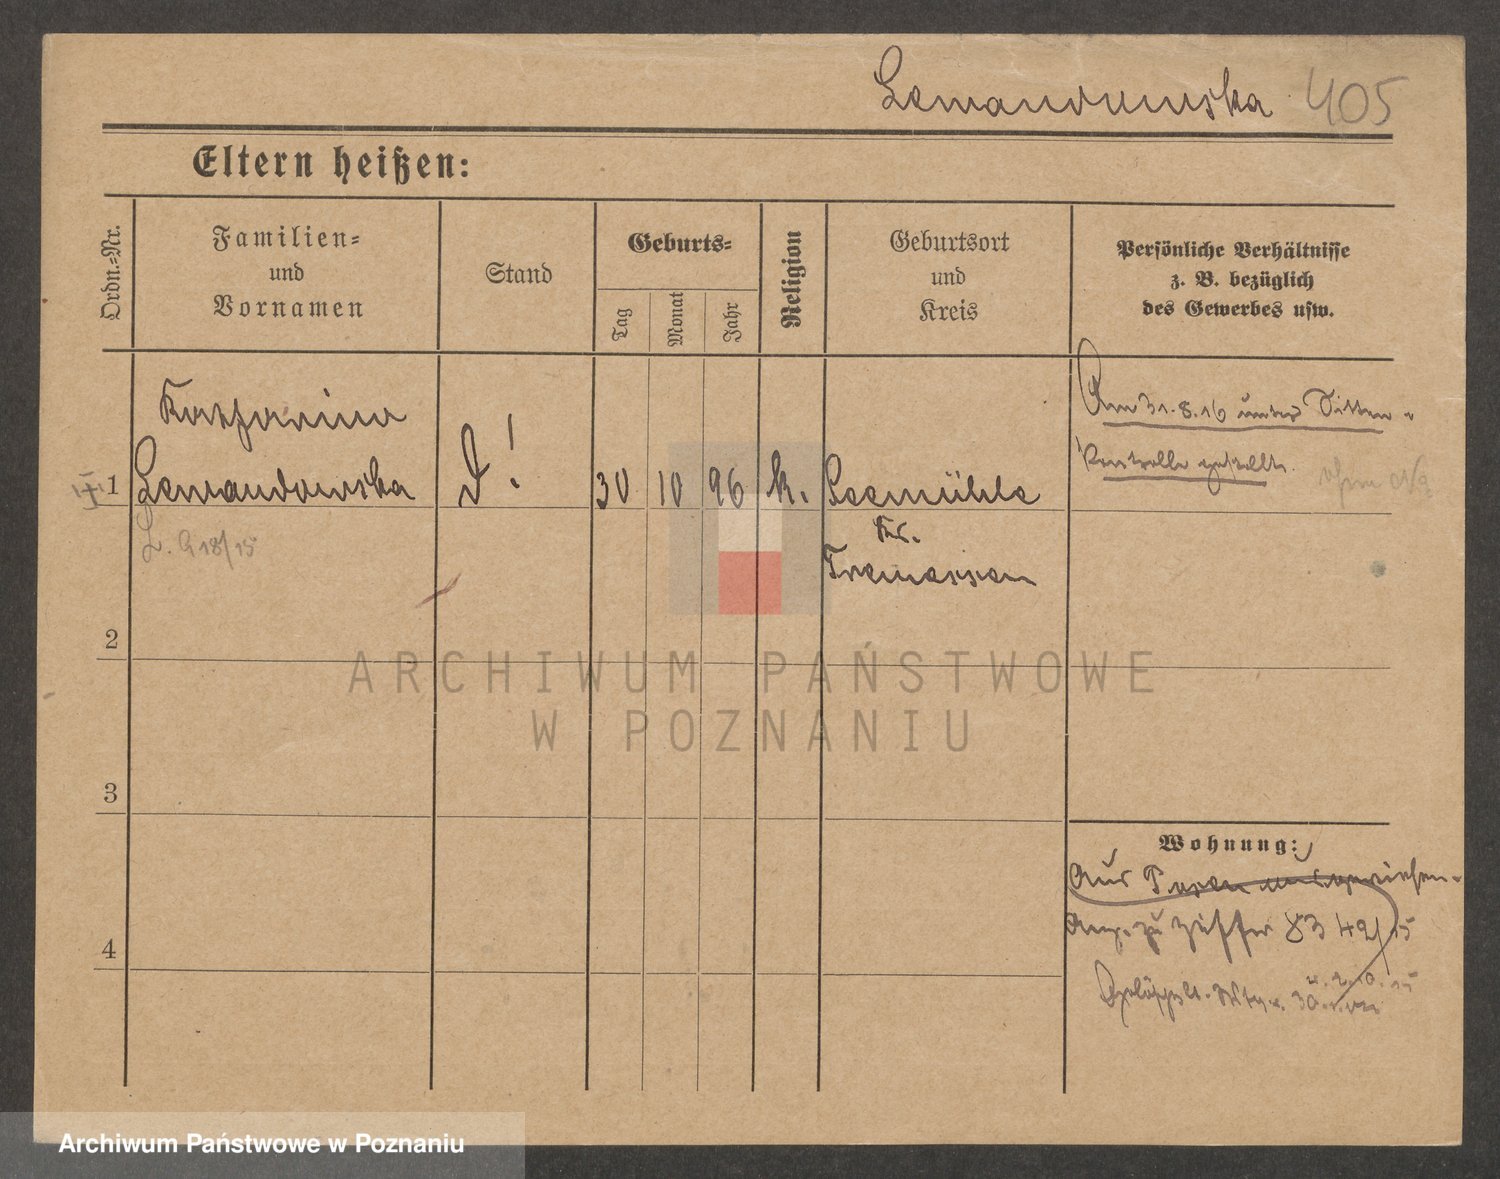 Lewandowska 405
Eltern heißen:
Ordn.-Nr.
Familien-
und
Vornamen
Stand
Geburts-
Tag
Monat
Jahr
Religion
Geburtsort
und
Kreis
Persönliche Verhältnisse
z. B. bezüglich
des Gewerbes usw.
Katharina
1 Lewandowska
D! 30 10 96 k. Seemühle
Kr.
Tremessen
Am 31.8.16 unter Sitten-
kontrolle gestellt.
L. G 18/15
2
3
4
Wohnung:
Aus Posen ausgewiesen.
Ang. zu Ziffer 83 42/15
Gelöscht.
ARCHIWUM PAŃSTWOWE
W POZNANIU
Archiwum Państwowe w Poznaniu